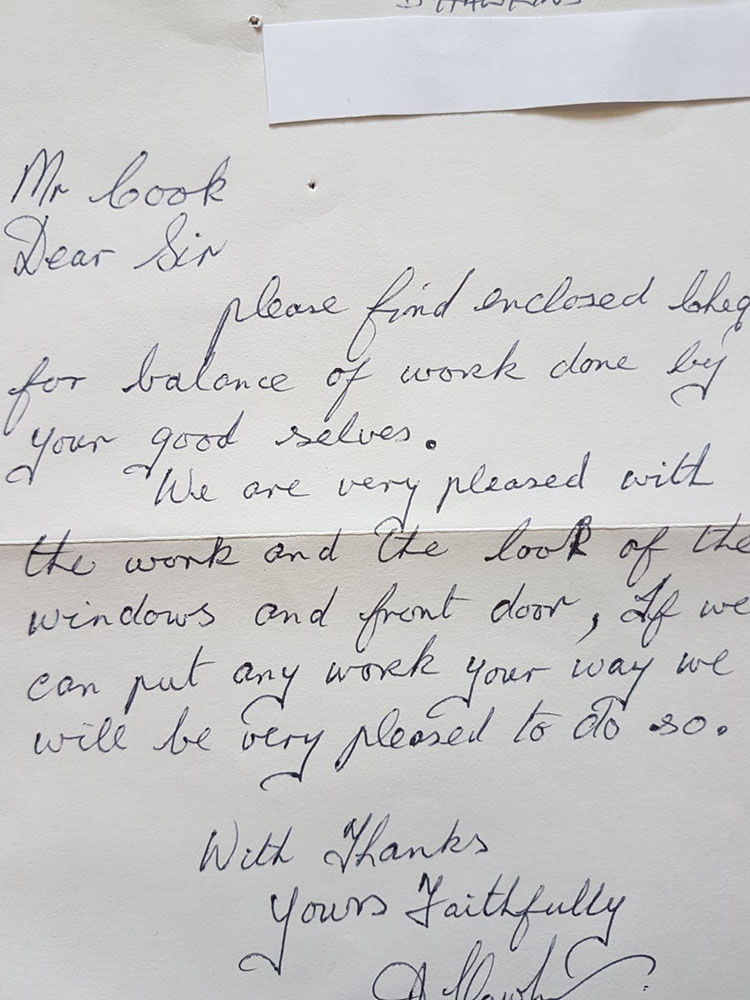 Mr Cook
Dear Sir
please find enclosed Cheq
for balance of work done by
your good selves.
We are very pleased with
the work and the look of the
windows and front door, If we
can put any work your way we
will be very pleased to do so.
With Thanks
Yours Faithfully